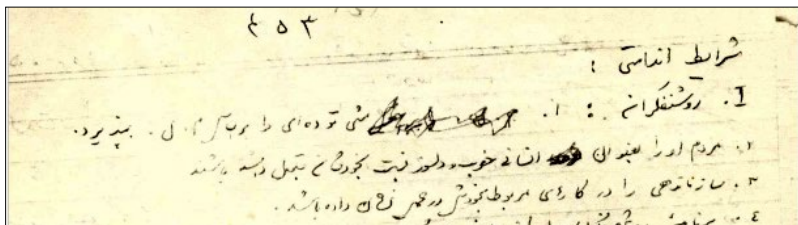 ۴۵۳
شرایط اساسی :
I. روشنفکران : ۱. مشی توده‌ای را بپذیرد.
۲. مردم او را بعنوان انسانی خوب و دلسوز نسبت بخودشان قبول داشته باشند
۳. سازماندهی را در کارهای مربوط بخودش در عمل نشان داده باشد.
۴.